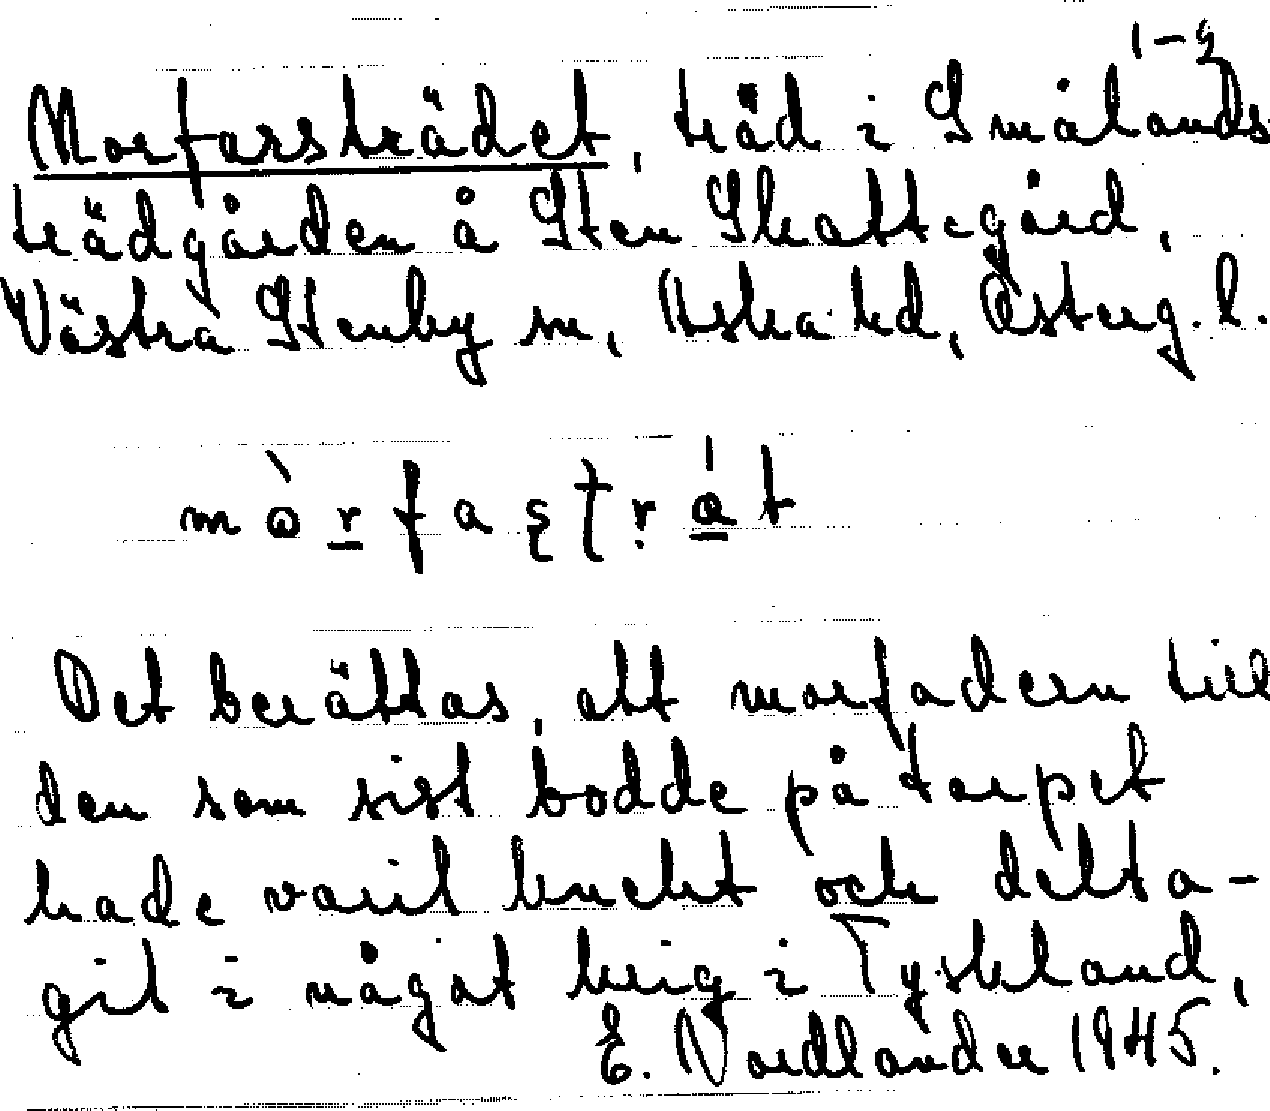 1-9
Morfarsträdet, träd i Smålands
trädgården å Sten Skattegård,
Västra Stenby sn, Aska hd, Österg. l.
mὼrfasträ́t
Det berättas, att morfadern till
den som sist bodde på torpet
hade varit knekt och delta-
git i något krig i Tyskland,
E. Nordlander 1945.